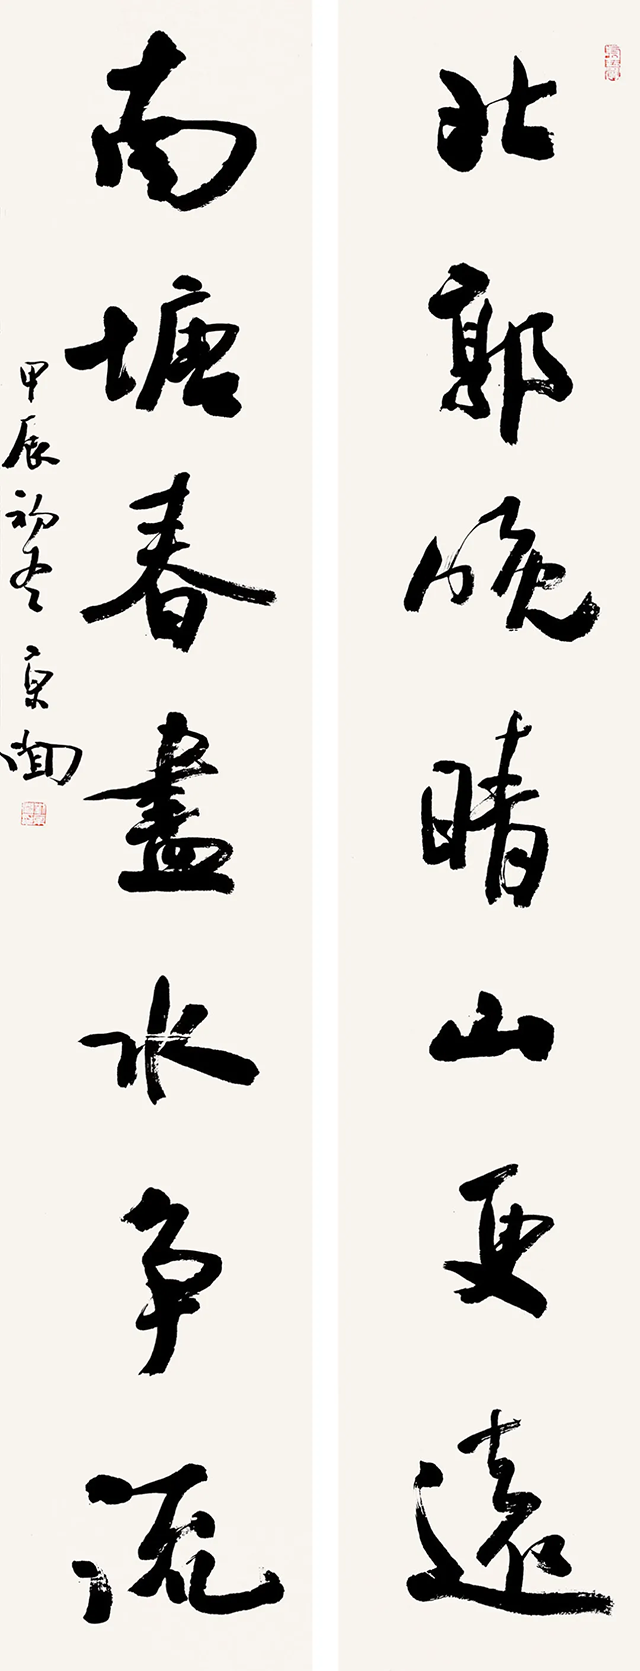 北郭晚晴山更遠
南塘春盡水争流
甲辰初冬